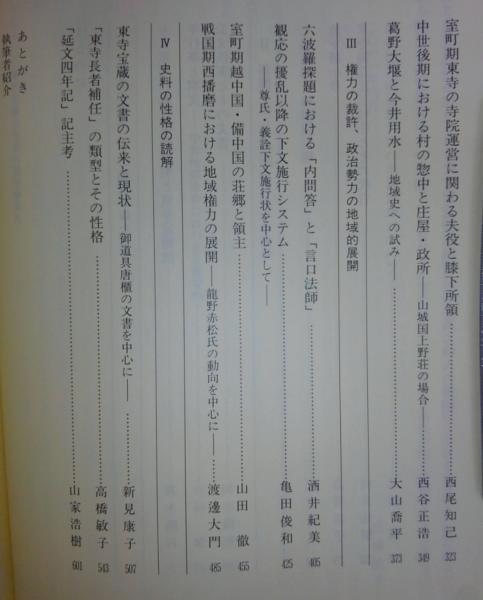 室町期東寺の寺院運営に関わる夫役と膝下所領………西尾知己 323
中世後期における村の惣中と庄屋・政所――山城国上野荘の場合――………西谷正浩 349
葛野大堰と今井用水――地域史への試み――………大山喬平 373
Ⅲ 権力の裁許、政治勢力の地域的展開
六波羅探題における「内問答」と「言口法師」………酒井紀美 405
観応の擾乱以降の下文施行システム
――尊氏・義詮下文施行状を中心として――………亀田俊和 425
室町期越中国・備中国の荘郷と領主………山田徹 455
戦国期西播磨における地域権力の展開――龍野赤松氏の動向を中心に――………渡邊大門 485
Ⅳ 史料の性格の読解
東寺宝蔵の文書の伝来と現状――御道具唐櫃の文書を中心に――………新見康子 507
「東寺長者補任」の類型とその性格………高橋敏子 543
「延文四年記」記主考………山家浩樹 601
あとがき
執筆者紹介